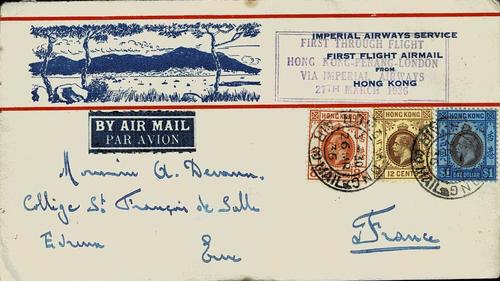 IMPERIAL AIRWAYS SERVICE
FIRST FLIGHT AIRMAIL
FROM
HONG KONG
FIRST THROUGH FLIGHT
HONG KONG-PENANG-LONDON
VIA IMPERIAL AIRWAYS
27TH MARCH 1936
BY AIR MAIL
PAR AVION
HONG KONG
HONG KONG
12 CENTS
HONG KONG
$1 ONE DOLLAR $1
Monsieur A.
Collège St François de Salle
Evreux
Eure
France